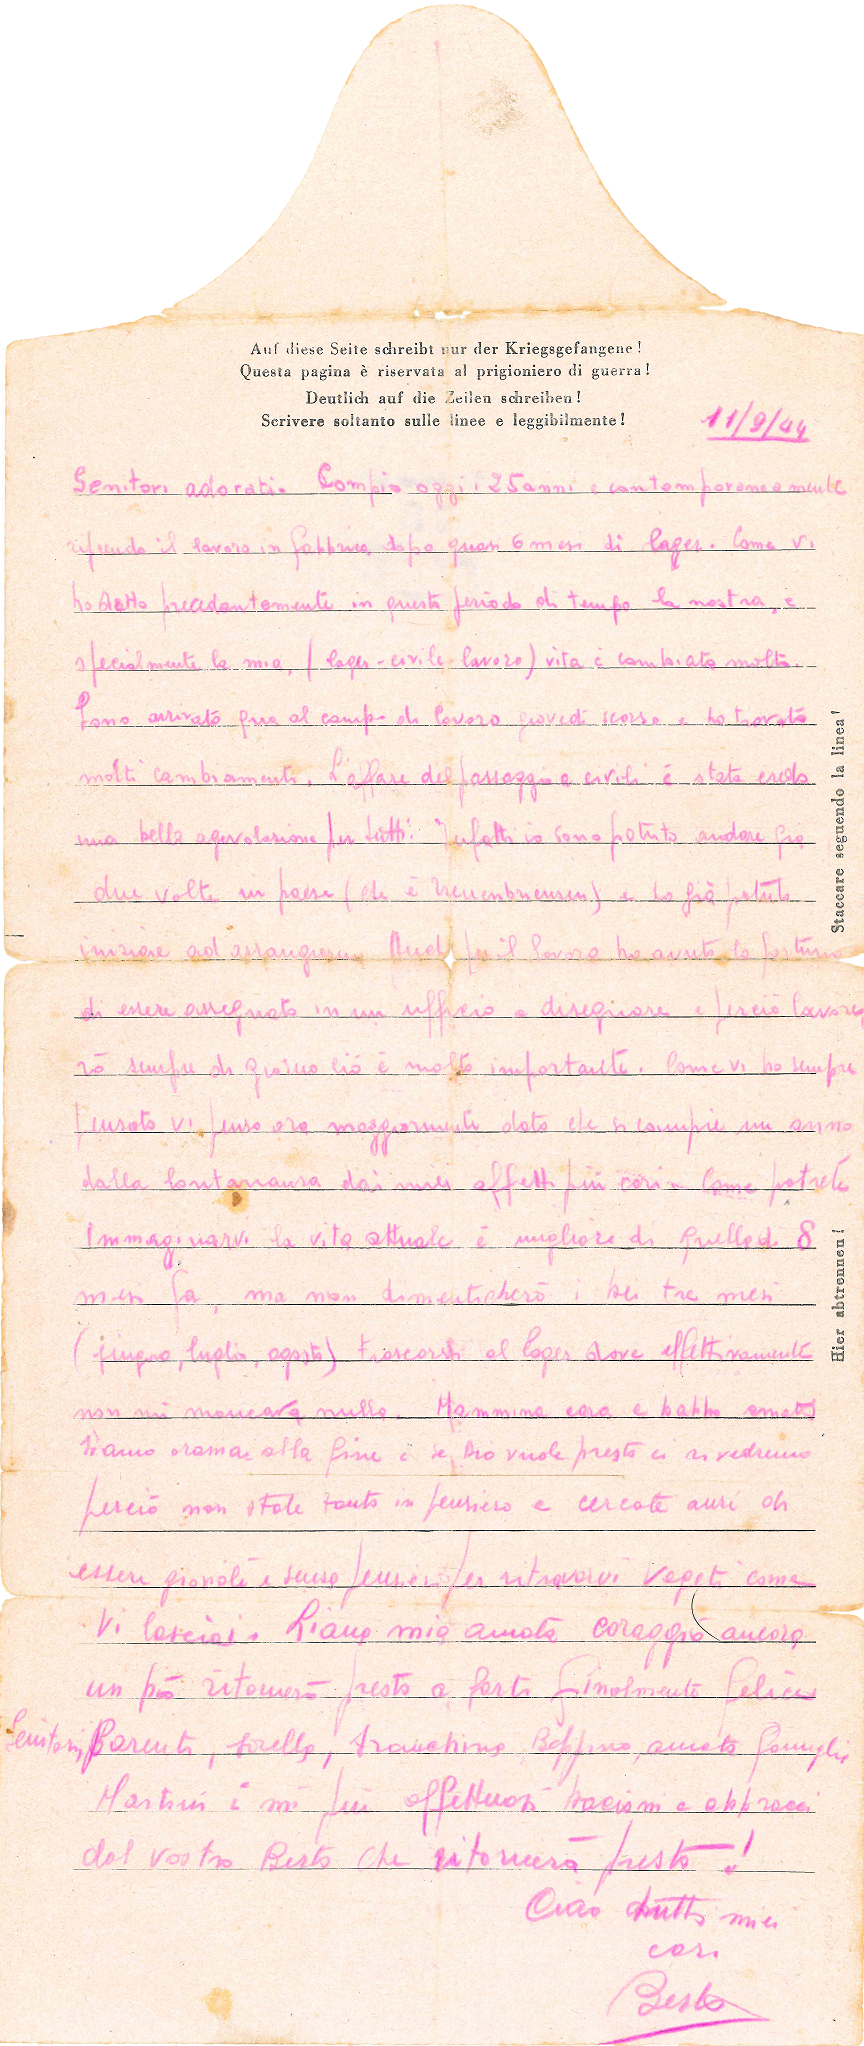 Auf diese Seite schreibt nur der Kriegsgefangene!
Questa pagina è riservata al prigioniero di guerra!
Deutlich auf die Zeilen schreiben!
Scrivere soltanto sulle linee e leggibilmente!
11/9/44
Genitori adorati. Compio oggi i 25 anni e contemporaneamente
riprendo il lavoro in fabbrica dopo quasi 6 mesi di lager. Come vi
ho detto precedentemente in questo periodo di tempo la nostra, e
specialmente la mia, (lager-civile lavoro) vita è cambiata molto.
Sono arrivato qua al campo di lavoro giovedì scorso e ho trovato
molti cambiamenti. L'affare del passaggio a civili è stata credo
una bella agevolazione per tutti. Infatti io sono potuto andare già
due volte in paese (che è Treuenbriensen) e ho già potuto
iniziare ad arrangiarmi. per il lavoro ho avuto la fortuna
di essere assegnato in un ufficio a disegnare e perciò lavore
rò sempre di giorno ciò è molto importante. Come vi ho sempre
pensato vi penso ora maggiormente dato che si compie un anno
dalla lontananza dai miei affetti più cari. Come potrete
Immaginarvi la vita attuale è migliore di quella di 8
mesi fa, ma non dimenticherò i bei tre mesi
(giugno, luglio, agosto) trascorsi al lager dove effettivamente
non mi mancava nulla. Mammina cara e babbo amato
siamo oramai alla fine e se Dio vuole presto ci rivedremo
perciò non state tanto in pensiero e cercate anzi di
essere gioviali e senza pensieri per ritrovarvi vegeti come
vi lasciai. Liana mia amata coraggio ancora
un pò ritornerò presto a farti finalmente felice
Genitori, Parenti, sorella, Franchino, Beppino, amata famiglia
Martini i mi più affettuosi bacioni e abbracci
dal vostro Berto che ritornerà presto!
Ciao tutti miei
cari
Berto
Staccare seguendo la linea!
Hier abtrennen!